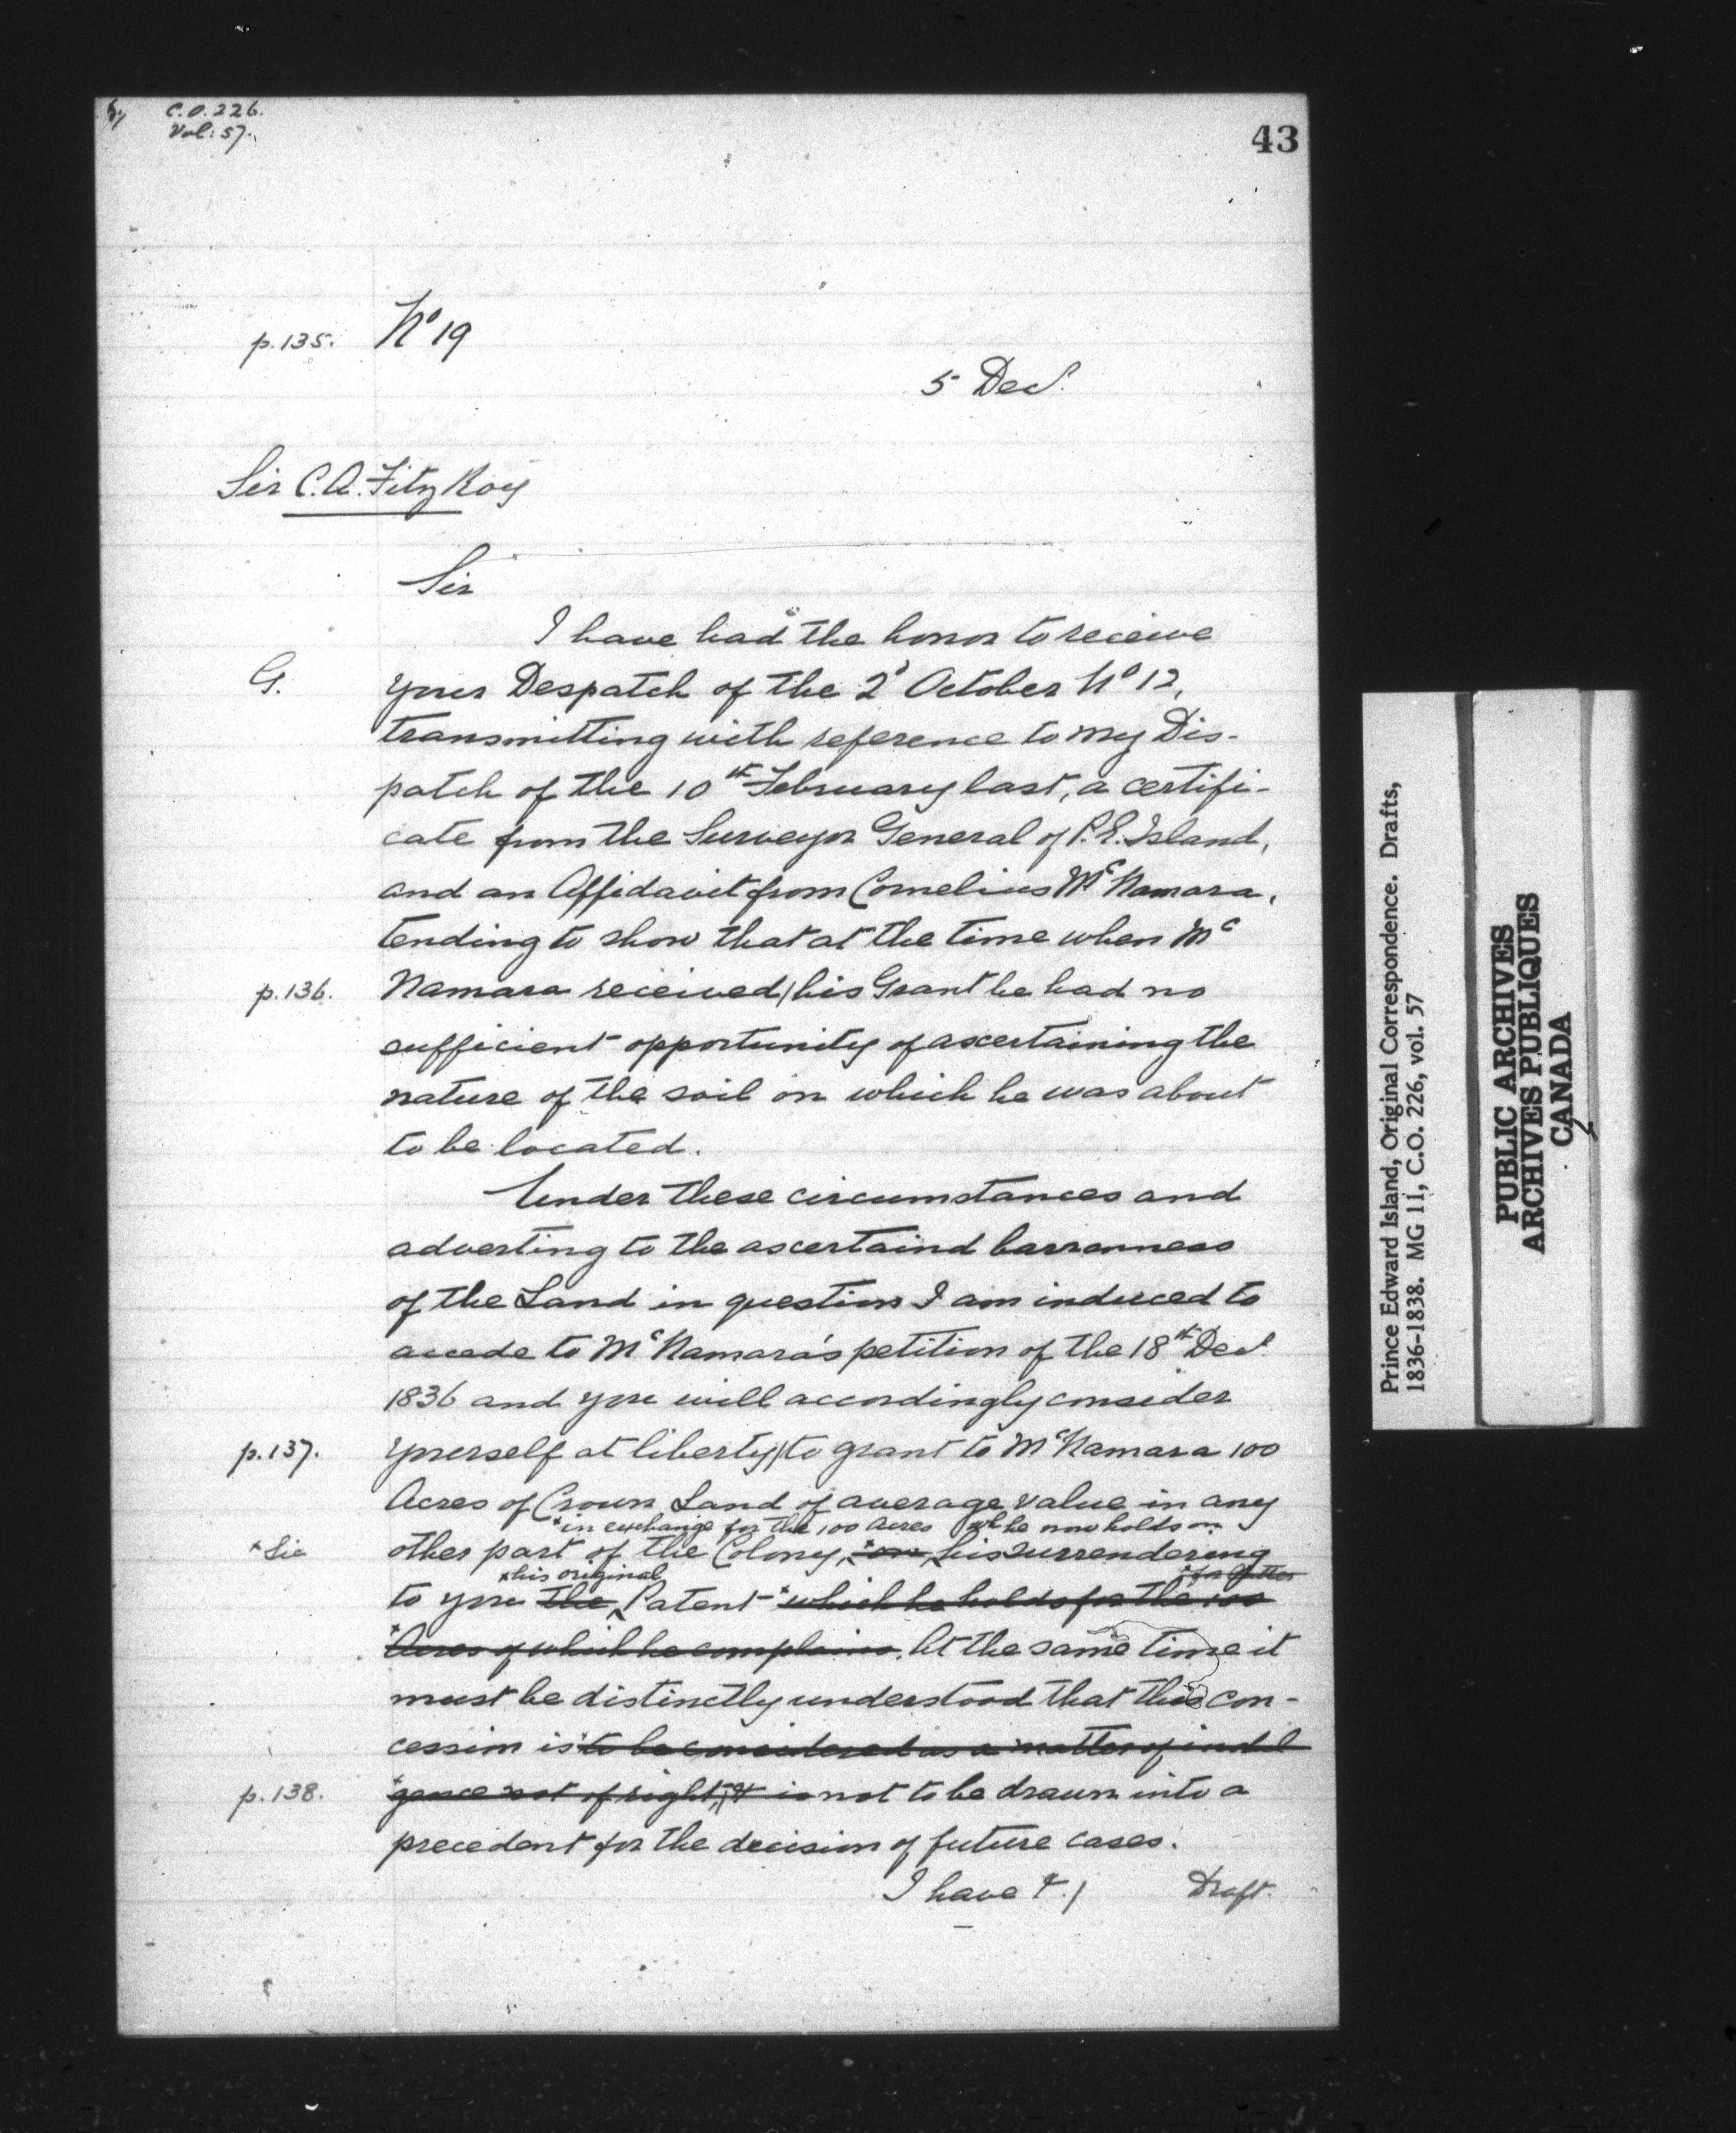 C.O. 226.
Vol: 57.
43
p.135. No 19
5 Decr.
Sir C.A. Fitz Roy
Sir
I have had the honor to receive
G. your Despatch of the 2d October No 12,
transmitting with reference to my Dis-
patch of the 10th February last, a certifi-
cate from the Surveyor General of P.E. Island,
and an Affidavit from Cornelius McNamara,
tending to show that at the time when Mc
p.136. Namara received/his Grant he had no
sufficient opportunity of ascertaining the
nature of the soil on which he was about
to be located.
Under these circumstances and
adverting to the ascertaind barrenness
of the Land in question I am induced to
accede to McNamara's petition of the 18th Decr.
1836 and you will accordingly consider
p.137. yourself at liberty/to grant to McNamara 100
Acres of Crown Land of average value in any
*in exchange for the 100 Acres wh he now holds on
*Sic other part of the Colony, *on, his surrendering
*his original *for the
to you the Patent *which he holds for the 100
*Acres of which he complains. At the same time it
must be distinctly understood that this con-
cession is *to be considered as a matter of indul
p.138. *gence not of right, /it is not to be drawn into a
precedent for the decision of future cases.
I have &./ Draft.
Prince Edward Island, Original Correspondence. Drafts,
1836-1838. MG 11, C.O. 226, vol. 57
PUBLIC ARCHIVES
ARCHIVES PUBLIQUES
CANADA